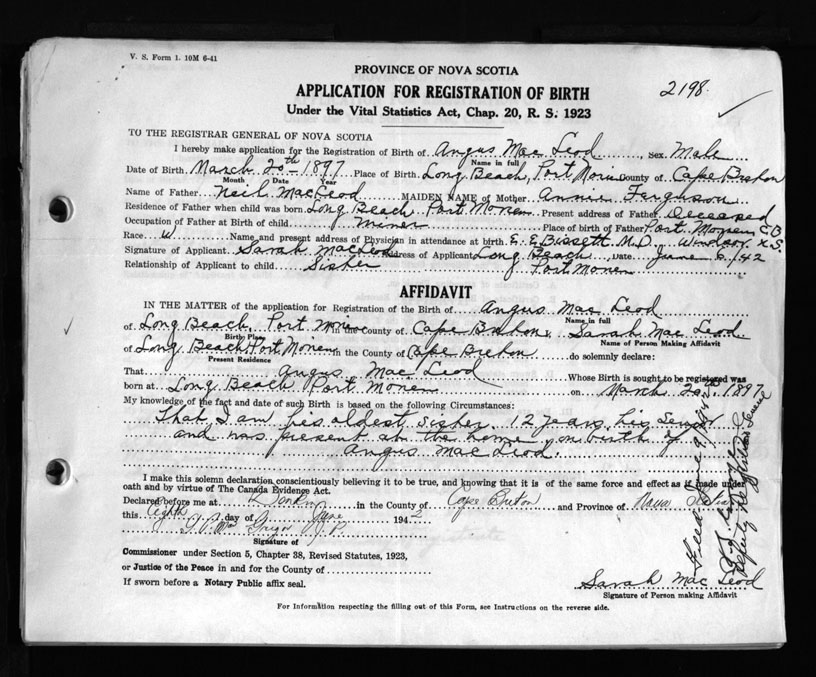 V. S. Form 1. 10M 6-41
PROVINCE OF NOVA SCOTIA
2198
APPLICATION FOR REGISTRATION OF BIRTH
Under the Vital Statistics Act, Chap. 20, R. S. 1923
TO THE REGISTRAR GENERAL OF NOVA SCOTIA
I hereby make application for the Registration of Birth of Angus Mac Leod, Sex Male
Name in full
Date of Birth March 20th 1897 Place of Birth Long Beach, Port Morien County of Cape Breton
Month Date Year
Name of Father Neil MacLeod MAIDEN NAME of Mother Annie Ferguson
Residence of Father when child was born Long Beach Port Morien Present address of Father Deceased
Occupation of Father at Birth of child Miner Place of birth of Father Port Morien C B
Race W Name and present address of Physician in attendance at birth E. E Bissett M.D. Windsor N.S.
Signature of Applicant Sarah MacLeod Address of Applicant Long Beach Date June 6/42
Relationship of Applicant to child Sister Port Morien
AFFIDAVIT
IN THE MATTER of the application for Registration of the Birth of Angus Mac Leod
Name in full
of Long Beach, Port Morien in the County of Cape Breton, Sarah Mac Leod
Birth Place Name of Person Making Affidavit
of Long Beach Port Morien in the County of Cape Breton do solemnly declare:
Present Residence
That Angus Mac Leod Whose Birth is sought to be registered was
born at Long Beach Port Morien on March 20th 1897
My knowledge of the fact and date of such Birth is based on the following Circumstances:
That I am his oldest sister 12 years his senior
and was present at the home on birth of
Angus Mac Leod.
I make this solemn declaration conscientiously believing it to be true, and knowing that it is of the same force and effect as if made under
oath and by virtue of The Canada Evidence Act.
Declared before me at Donkin in the County of Cape Breton and Province of Nova Scotia
this Eighth day of June 1942
J. P.
Signature of
Commissioner under Section 5, Chapter 38, Revised Statutes, 1923,
or Justice of the Peace in and for the County of
If sworn before a Notary Public affix seal.
Sarah Mac Leod
Signature of Person making Affidavit
For Information respecting the filling out of this Form, see Instructions on the reverse side.
Filed June 9, 1942
Deputy Registrar General